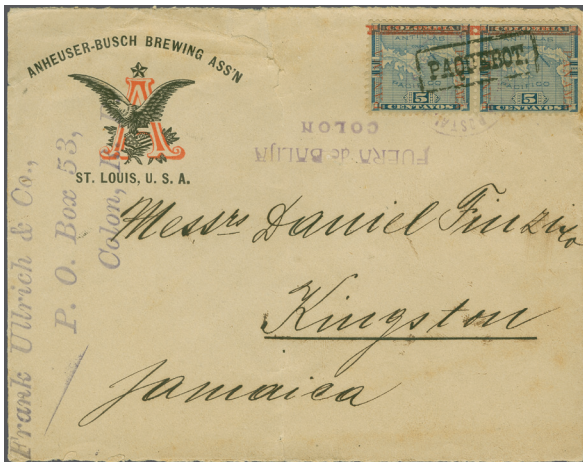 ANHEUSER-BUSCH BREWING ASS'N
A
ST. LOUIS, U. S. A.
COLOMBIA COLOMBIA
PACIFIC
5 5
CENTAVOS CENTAVOS
PAQUEBOT.
FUERA de BALIJA
COLON
Frank Ullrich & Co.,
P. O. Box 53,
Colon,
Messrs Daniel Finzi & Co
Kingston
Jamaica